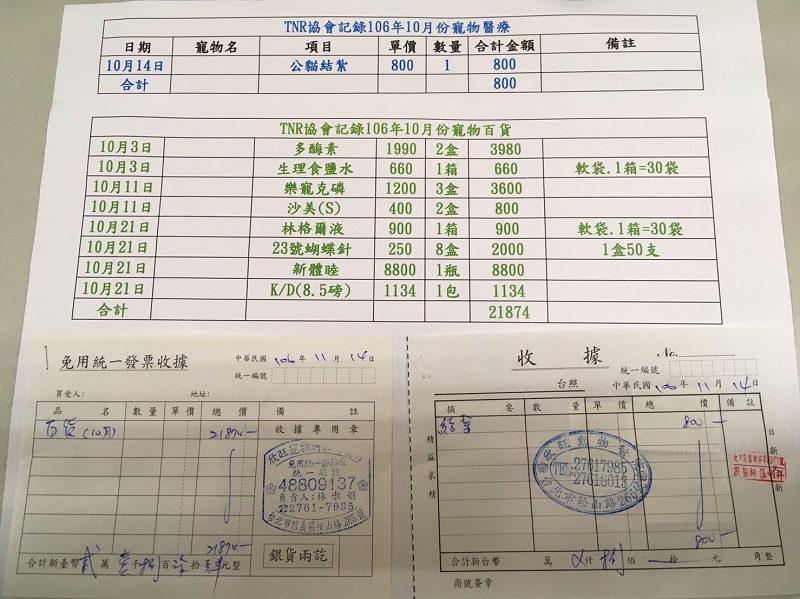 TNR協會記錄106年10月份寵物醫療
日期 寵物名 項目 單價 數量 合計金額 備註
10月14日 公貓結紮 800 1 800
合計 800
TNR協會記錄106年10月份寵物百貨
10月3日 多酶素 1990 2盒 3980
10月3日 生理食鹽水 660 1箱 660 軟袋.1箱=30袋
10月11日 樂寵克磷 1200 3盒 3600
10月11日 沙美(S) 400 2盒 800
10月21日 林格爾液 900 1箱 900 軟袋.1箱=30袋
10月21日 23號蝴蝶針 250 8盒 2000 1盒50支
10月21日 新體睦 8800 1瓶 8800
10月21日 K/D(8.5磅) 1134 1包 1134
合計 21874
免用統一發票收據
中華民國 106 年 11 月 14 日
統一編號
買受人: 地址:
品名 數量 單價 總價 備註
百貨(10月) 21874
收據專用章
欣旺寵物
免用統一發票
統一編號
48809137
負責人:林淑娟
☎2761-7985
台北市信義區松山路265號
21874
合計新臺幣 貳 萬 壹 千 捌 百 柒 拾 肆 元整
銀貨兩訖
收據
No.
統一編號
台照
中華民國 106 年 11 月 14 日
摘要 數量 單價 總價 備註
結紮 800
精益求精
日新又新
欣旺動物
TEL:27617985
27618013
台北市松山路265號
800
合計新台幣 萬 仟 捌 佰 拾 元 角整
商號簽章